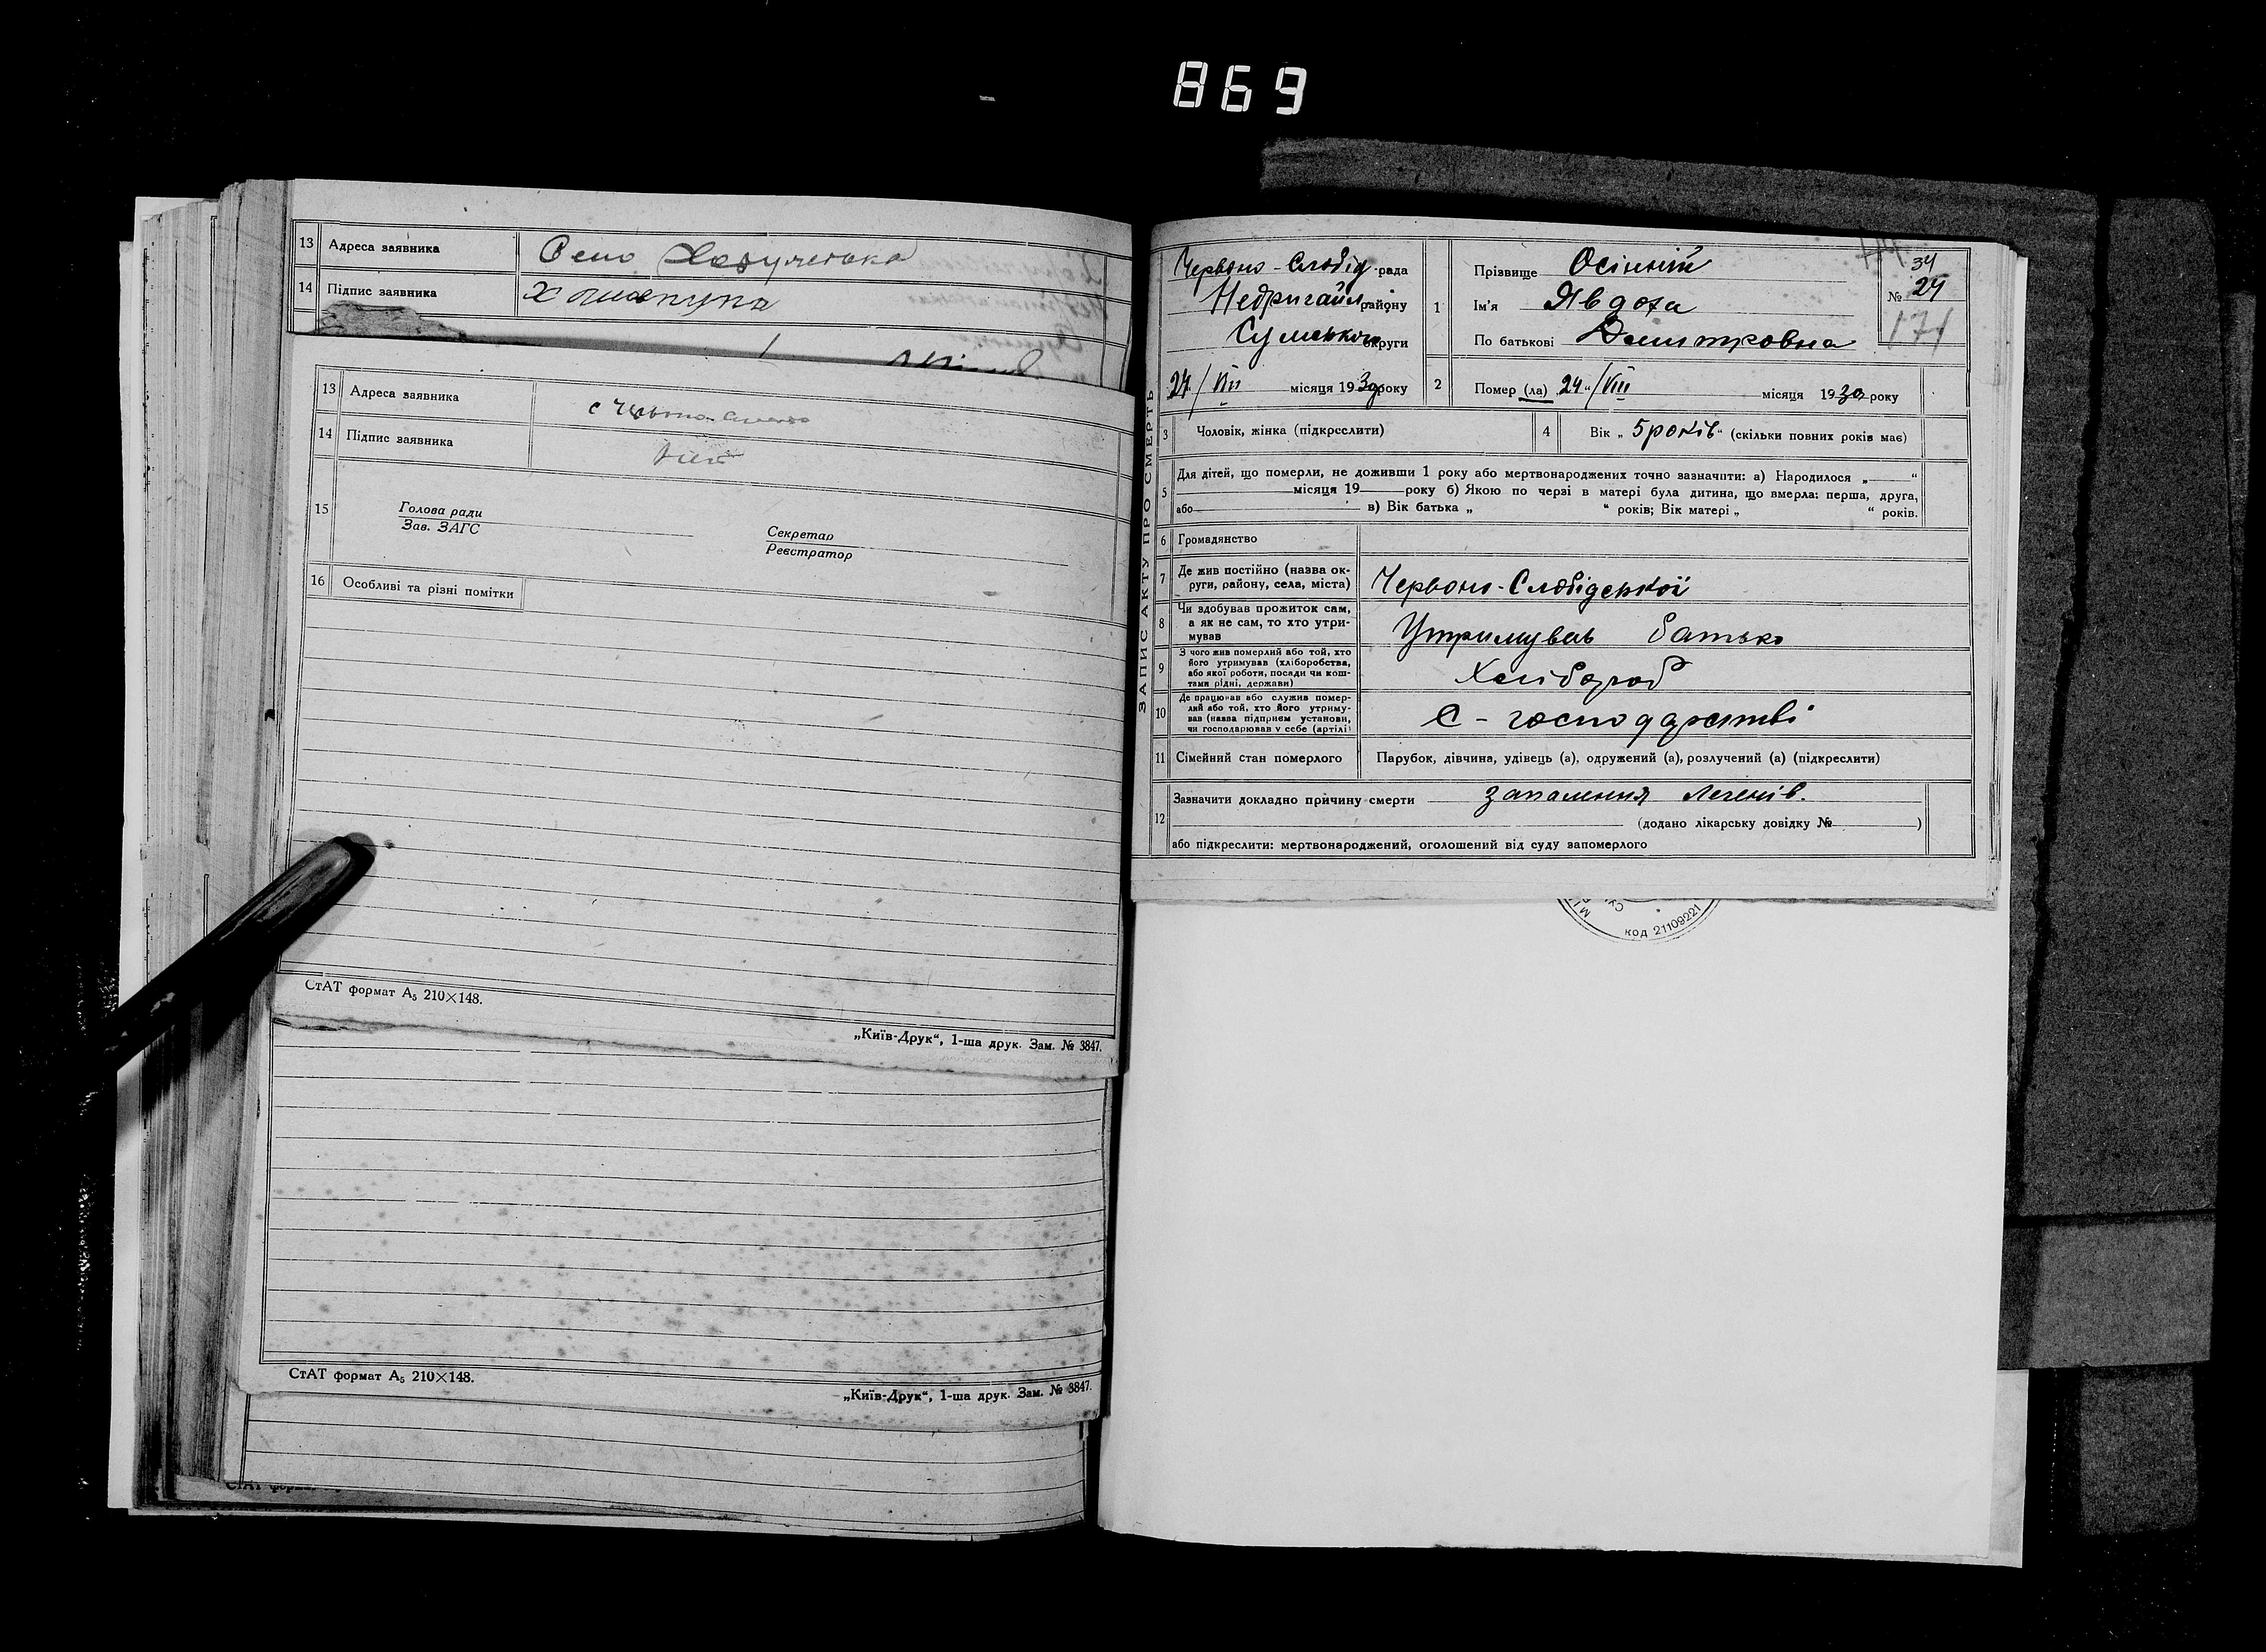 869
13 Адреса заявника Село
14 Підпис заявника
13 Адреса заявника с Червона Слобода
14 Підпис заявника
15 Голова ради
Зав. ЗАГС
Секретар
Реєстратор
16 Особливі та різні помітки
СтАТ формат А₅ 210×148.
„Київ-Друк“, 1-ша друк. Зам. № 3847.
СтАТ формат А₅ 210×148.
„Київ-Друк“, 1-ша друк. Зам. № 3847.
СтАТ
ЗАПИС АКТУ ПРО СМЕРТЬ
Червоно-Слобід рада
Недригайл району
Сумського округи
24/VIII місяця 1930 року
1 Прізвище Осінній
Ім'я Явдоха
По батькові Дмитровна
34
№ 24
171
2 Помер (ла) 24 „/VIII місяця 1930 року
3 Чоловік, жінка (підкреслити)
4 Вік „ 5 років “ (скільки повних років має)
5 Для дітей, що померли, не доживши 1 року або мертвонароджених точно зазначити: а) Народилося „ “
місяця 19 року б) Якою по черзі в матері була дитина, що вмерла: перша, друга,
або в) Вік батька „ “ років; Вік матері „ “ років.
6 Громадянство
7 Де жив постійно (назва ок-
руги, району, села, міста) Червоно-Слобідської
8 Чи здобував прожиток сам,
а як не сам, то хто утри-
мував Утримував батько
9 З чого жив померлий або той, хто
його утримував (хліборобства,
або якої роботи, посади чи кош-
тами рідні, держави) Хлібороб
10 Де працював або служив помер-
лий або той, хто його утриму-
вав (назва підприєм установи,
чи господарював у себе (артілі) С-господарстві
11 Сімейний стан померлого Парубок, дівчина, удівець (а), одружений (а), розлучений (а) (підкреслити)
12 Зазначити докладно причину смерти запалення легенів.
(додано лікарську довідку № )
або підкреслити: мертвонароджений, оголошений від суду запомерлого
код 21109221